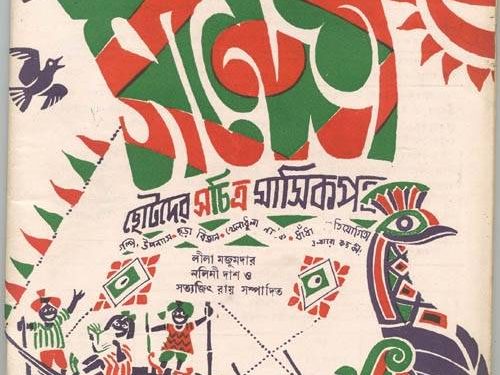 সন্দেশ
ছোটদের সচিত্র মাসিকপত্র
গল্প, উপন্যাস, ছড়া বিজ্ঞান, খেলাধুলা ধাঁধা
লীলা মজুমদার
নলিনী দাশ ও
সত্যজিৎ রায় সম্পাদিত